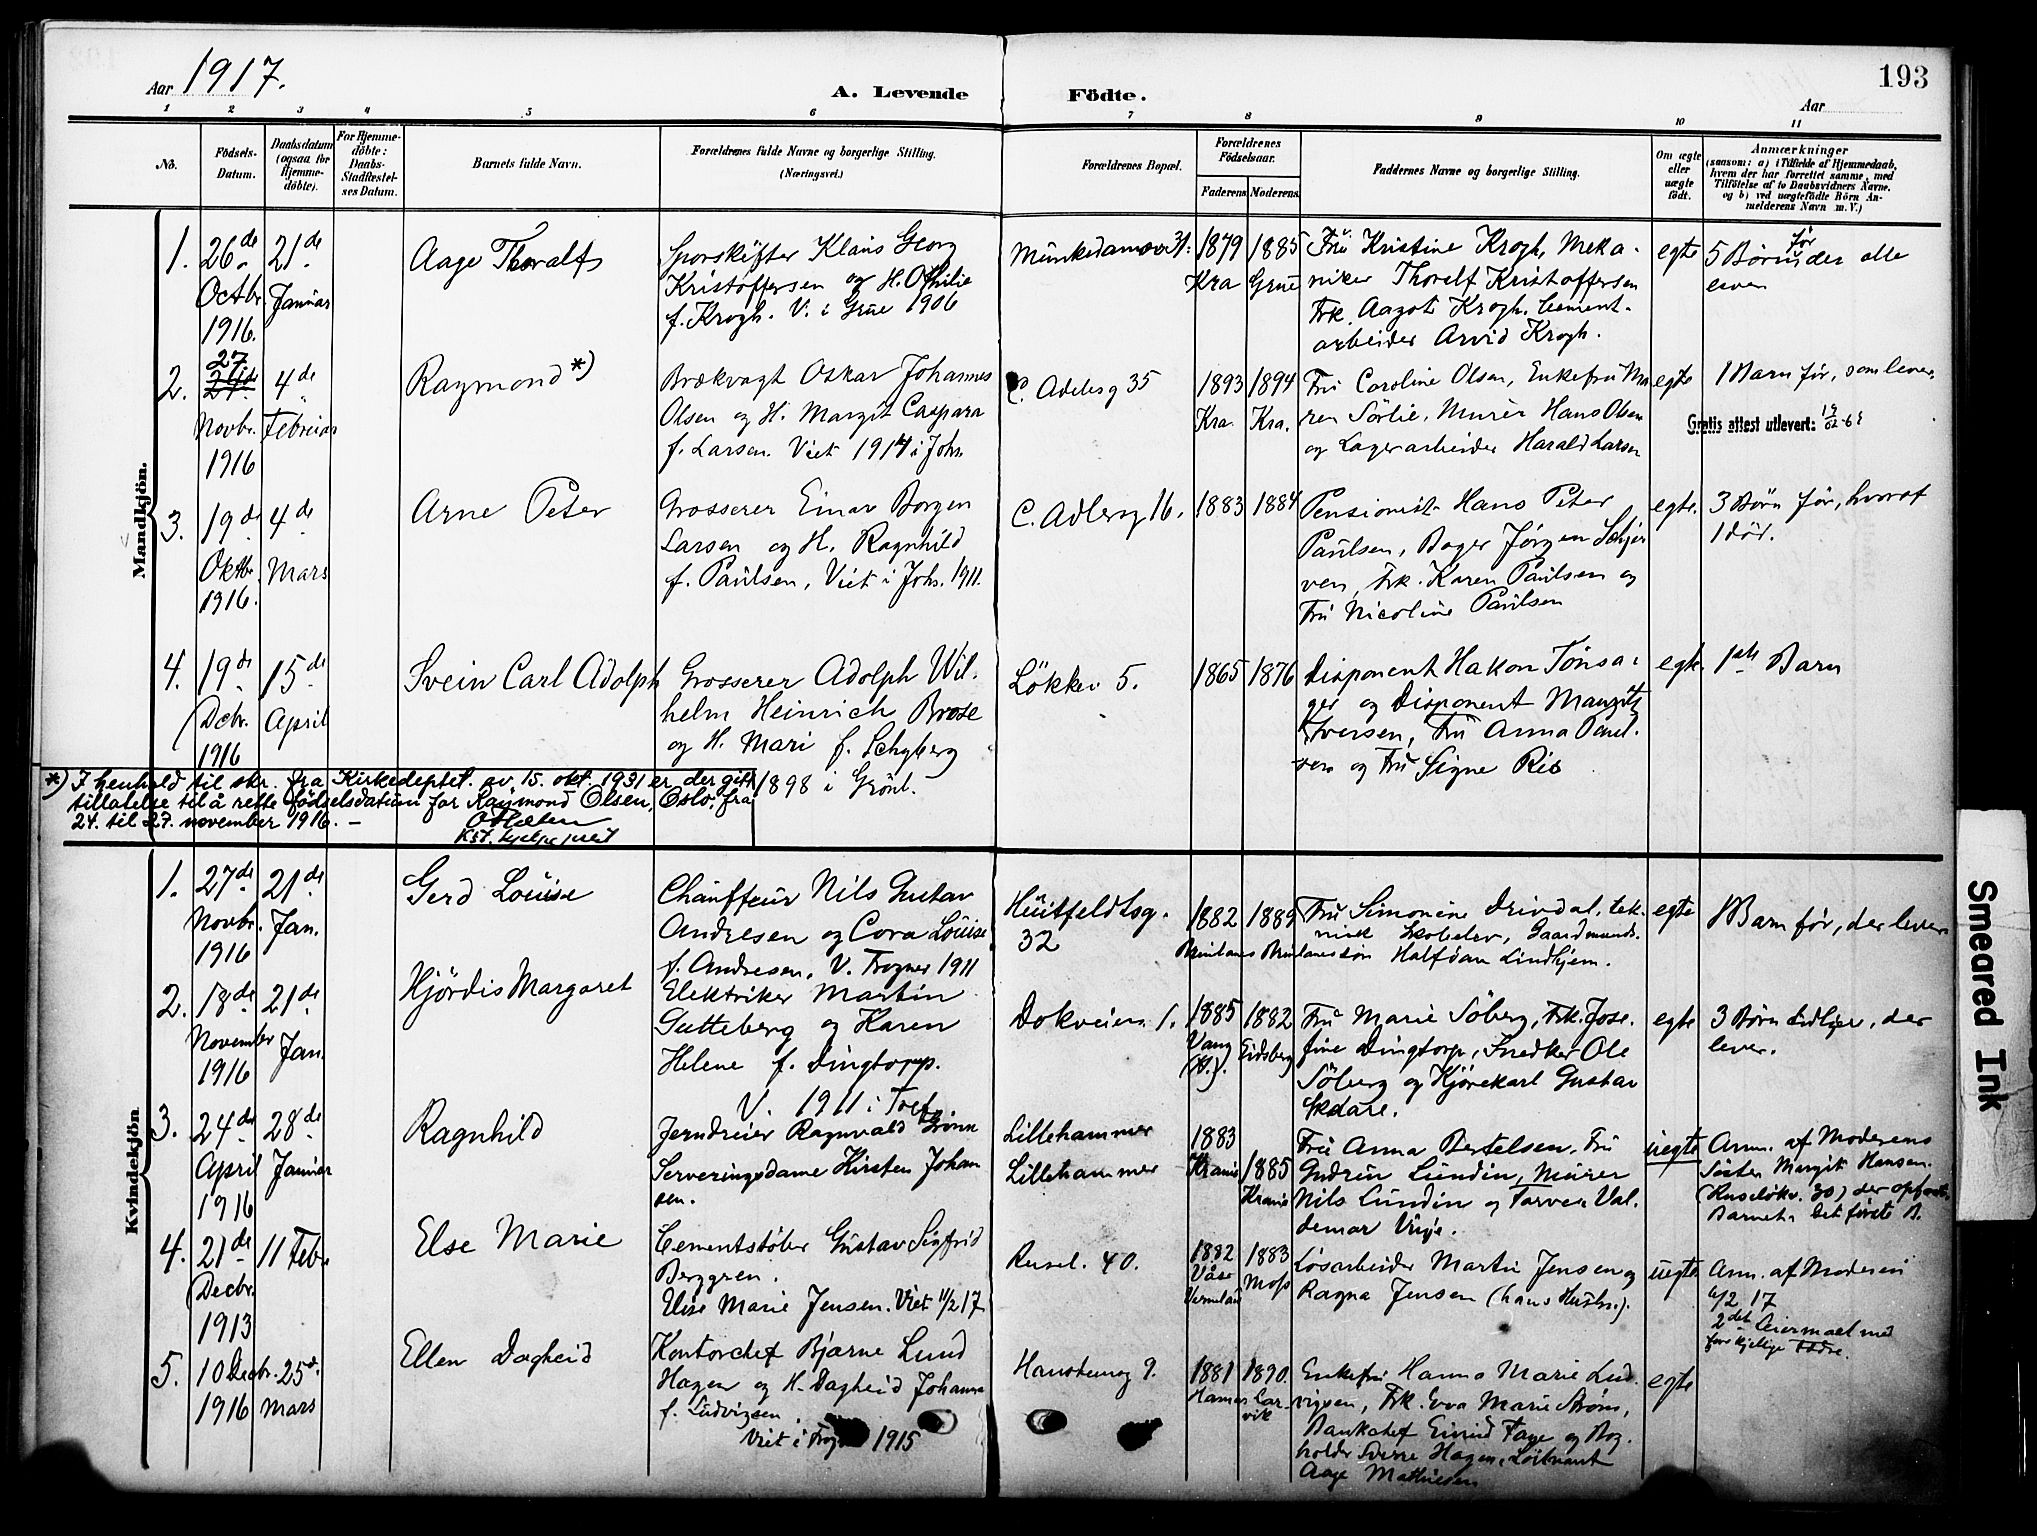 Aar 1917.
A. Levende Födte.
Aar
193
1 2 3 4 5 6 7 8 9 10 11
No.
Födsels-
Datum.
Daabsdatum
(ogsaa for
Hjemme-
döbte).
For Hjemme-
döbte:
Daabs-
Stadfæstel-
ses Datum.
Barnets fulde Navn.
Forældrenes fulde Navne og borgerlige Stilling.
(Næringsvei.)
Forældrenes Bopæl.
Forældrenes
Födselsaar.
Faderens. Moderens.
Faddernes Navne og borgerlige Stilling.
Om ægte
eller
uægte
födt.
Anmærkninger
(saasom: a) i Tilfælde af Hjemmedaab,
hvem der har forrettet samme, med
Tilföielse af to Daabsvidners Navne.
og b) ved uægtefödte Börn An-
melderens Navn m. V.)
Mandkjön.
1.
26de
Octbr.
1916.
21de
Januar
Aage Thoralf
Klaus Georg
Kristoffersen og H. Othilie
f. Krogh. V. i Grue 1906
Munkedamsv 31.
1879
Kra
1885
Grue
Fru Kristine Krogh, Meka-
niker Thoralf Kristoffersen
Frk. Aagot Krogh. Cement-
arbeider Arvid Krogh.
egte
5 Börn før, der alle
lever
2.
27
24de
Novbr.
1916
4de
Februar
Raymond *)
Brækvagt Oskar Johannes
Olsen og H. Margit Caspara
f. Larsen. Viet 1914 i Joh.
C. Adelersg 35
1893
Kra.
1894
Kra.
Fru Caroline Olsen, Enkefru Ma
ren Sørlie, Murer Hans Olsen
og Lagerarbeider Harald Larsen
egte
1 Barn før, som lever.
Gratis attest utlevert:
3.
19de
Oktbr.
1916.
4de
Mars
Arne Peter
Grosserer Einar Borgen
Larsen og H. Ragnhild
f. Paulsen, Viet i Joh. 1911.
C. Adlersg 16.
1883
1884
Pensionist Hans Peter
Paulsen, Bager Jørgen Schjer
ven, Frk. Karen Paulsen og
Fru Nicoline Paulsen
egte.
3 Börn før, hvoraf
1 død.
4.
19de
Decbr.
1916
15de
April
Svein Carl Adolph
Grosserer Adolph Wil-
helm Heinrich Brose
og H. Mari f. Schyberg
1898 i Grönl.
Lökkev 5.
1865
1876
Disponent Hakon Tönsa-
ger og Disponent Mauritz
Iversen, Fru Anna Paul-
sen og Fru Signe Ris
egte.
1ste Barn
*) I henhold til skr. fra Kirkedeptet. av 15. okt. 1931 er der gitt
tillatelse til å rette födselsdatum for Raymond Olsen, Oslo, fra
24. til 27. november 1916. –
Kst. hjelpeprest
Kvindekjön.
1.
27de
Novbr.
1916
21de
Jan.
Gerd Louise
Chauffeur Nils Gustav
Andresen og Cora Louise
f. Andresen, V. Frogner 1911
Huitfeldtsg.
32
1882
1889
Fru Simonine Drivdal, tek-
nisk Skolelev, Gaardmands-
sön Halfdan Lindhjem.
egte
1 Barn før, der lever
2.
18de
November
1916
21de
Jan.
Hjördis Margaret
Elektriker Martin
Gutteberg og Karen
Helene f. Dingtorp.
V. 1911 i Tref.
Dokveien 1.
1885
Vang
(H.).
1882
Eidsberg
Fru Marie Söberg, Frk. Jose-
fine Dingtorp, Snedker Ole
Söberg og Kjörekarl Gustav
Skdare.
egte
3 Börn tidliger, der
lever.
3.
24de
April
1916
28de
Januar
Ragnhild
Jerndreier Ragnvald Grönn
Serveringsdame Kirsten Johan
sen.
Lillehammer
Lillehammer
1883
Krania
1885
Krania
Fru Anna Bertelsen, Fru
Gudrun Lundin, Murer
Nils Lundin og Farver Val-
demar Vrije.
uegte
Anm. af Moderens
Søster Margit Hansen.
(Ruselökv. 30) der opfostr.
Barnet. Det første B.
4.
21de
Decbr.
1913
11 Febr.
Else Marie
Cementstöber Gustav Sigfrid
Berggren.
Elise Marie Jensen. Viet 11/2 17
Rusel. 40.
1882
Våse
Vermeland
1883
Moss
Løsarbeider Martin Jensen og
Ragna Jensen (hans Hustru).
uegte
Anm. af Moderen
6/2 17
2det Leiermaal med
forskjellige Fædre.
5.
10 Decbr.
1916
25de
Mars
Ellen Dagheid
Kontorchef Bjarne Lund
Hagen og H. Dagheid Johanna
f. Ludvigsen.
Viet i Frogner 1915
Hansteensg 9.
1881
Hamar
1890.
Lar-
vik
Enkefru Hanna Marie Lud-
vigsen, Frk. Eva Marie Strøm,
Bankchef Eivind Faye og Bog-
holder Sverre Hagen, Löitnant
Aage Mathiesen
egte
Smeared Ink